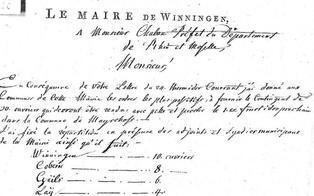 LE MAIRE DE WINNINGEN,
A Monsieur Chaban Préfet du Département
de Rhin et Moselle.
Monsieur!
En conséquence de votre Lettre du 24 Nivose Courant j'ai donné aux
Communes de Cette Mairie les ordres les plus positifs, à fournir le Contingent de
ouvriers qui devront être rendus avec et pioche le 1.er
dans la Commune de
J'ai fixé la répartition en présence des adjoints et Syndics municipaux
de la Mairie ainsi qu'il suit:
Winningen — 10. ouvriers
Cobern — 8.
— 6.
Lay — 4.